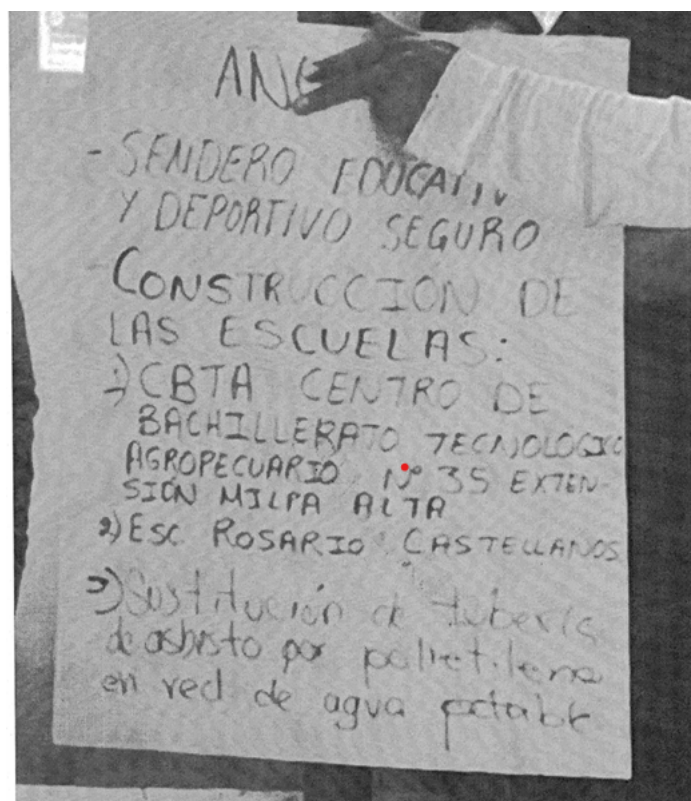 - SENDERO EDUCATIV
Y DEPORTIVO SEGURO
- CONSTRUCCIÓN DE
LAS ESCUELAS:
1) CBTA CENTRO DE
BACHILLERATO TECNOLOGICO
AGROPECUARIO Nº 35 EXTEN-
SIÓN MILPA ALTA
2) ESC ROSARIO CASTELLANOS
3) Sustitución de tubería
de asbesto por polietileno
en red de agua potable